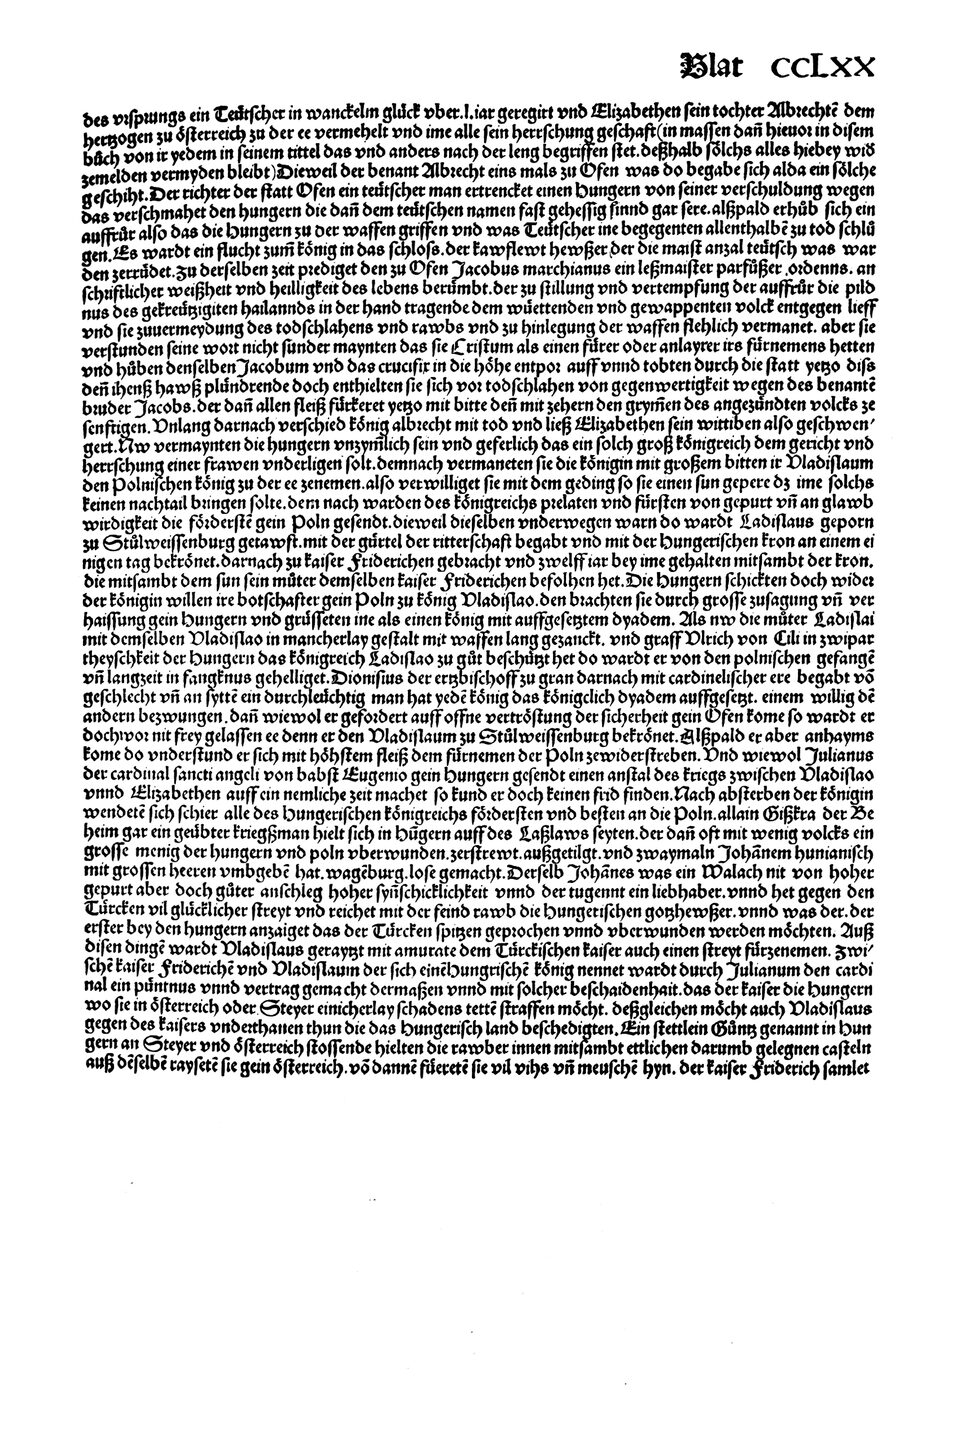 Blat CCLXX
des vrsprungs ein Teütscher in wanckelm glück vber.l.iar geregirt vnd Elizabethen sein tochter Albrechtē dem
hertzogen zu österreich zu der ee vermehelt vnd ime alle sein herrschung geschaft(in massen dañ hieuor in disem
bůch von ir yedem in seinem tittel das vnd anders nach der leng begriffen stet.deßhalb sölchs alles hiebey wið
zemelden vermyden bleibt)Dieweil der benant Albrecht eins mals zu Ofen was do begabe sich alda ein sölche
geschiht.Der richter der statt Ofen ein teütscher man ertrencket einen Hungern von seiner verschuldung wegen
das verschmahet den hungern die dañ dem teütschen namen fast gehessig sinnd gar sere.alßpald erhůb sich ein
auffrůr also das die Hungern zu der waffen griffen vnd was Teütscher ine begegenten allenthalbē zu tod schlů
gen.Es wardt ein flucht zum̃ könig in das schloss.der kawflewt hewßer der die maist anzal teütsch was war
den zerrüdet.Zu derselben zeit prediget den zu Ofen Jacobus marchianus ein leßmaister parfüßer ordenns. an
schriftlicher weißheit vnd heilligkeit des lebens berümbt.der zu stillung vnd vertempfung der auffrůr die pild
nus des gekreützigiten hailannds in der hand tragende dem wüettenden vnd gewappenten volck entgegen lieff
vnd sie zuuermeydung des todschlahens vnd rawbs vnd zu hinlegung der waffen flehlich vermanet. aber sie
verstunden seine wort nicht sunder maynten das sie Cristum als einen fürer oder anlayrer irs fürnemens hetten
vnd hüben denselben Jacobum vnd das crucifix in die höhe entpor auff vnnd tobten durch die statt yetzo diss
deñ ihenß hawß plündrende doch enthielten sie sich vor todschlahen von gegenwertigkeit wegen des benantē
bruder Jacobs.der dañ allen fleiß fürkeret yetzo mit bitte deñ mit zehern den grym̃en des angezündten volcks ze
senftigen.Vnlang darnach verschied könig albrecht mit tod vnd ließ Elizabethen sein wittiben also geschwen
gert.Nw vermaynten die hungern vnzym̃lich sein vnd geferlich das ein solch groß königreich dem gericht vnd
herrschung einer frawen vnderligen solt.demnach vermaneten sie die königin mit großem bitten ir Vladislaum
den Polnischen könig zu der ee zenemen.also verwilliget sie mit dem geding so sie einen sun gepere dz ime solchs
keinen nachtail bringen solte.dem nach warden des königreichs prelaten vnd fürsten von gepurt vñ an glawb
wirdigkeit die förderstē gein Poln gesendt.dieweil dieselben vnderwegen warn do wardt Ladislaus geporn
zu Stůlweissenburg getawft.mit der gürtel der ritterschaft begabt vnd mit der Hungerischen kron an einem ei
nigen tag bekrönet.darnach zu kaiser Friderichen gebracht vnd zwelff iar bey ime gehalten mitsambt der kron.
die mitsambt dem sun sein můter demselben kaiser Friderichen befolhen het.Die Hungern schickten doch wider
der königin willen ire botschafter gein Poln zu könig Vladislao.den brachten sie durch grosse zusagung vñ ver
haissung gein Hungern vnd grüsseten ine als einen könig mit auffgesetztem dyadem. Als nw die můter Ladislai
mit demselben Vladislao in mancherlay gestalt mit waffen lang gezanckt. vnd graff Vlrich von Cili in zwipar
theyschkeit der Hungern das königreich Ladislao zu gůt beschützt het do wardt er von den polnischen gefangē
vñ langzeit in fangknus gehelliget.Dionisius der ertzbischoff zu gran darnach mit cardinelischer ere begabt vō
geschlecht vñ an syttē ein durchleüchtig man hat yedē könig das königclich dyadem auffgesetzt. einem willig dē
andern bezwungen.dañ wiewol er gefordert auff offne vertröstung der sicherheit gein Ofen kome so wardt er
doch vor nit frey gelassen ee denn er den Vladislaum zu Stůlweissenburg bekrönet.Alßpald er aber anhayms
kome do vnderstund er sich mit höhstem fleiß dem fürnemen der Poln zewiderstreben.Vnd wiewol Julianus
der cardinal sancti angeli von babst Eugenio gein Hungern gesendt einen anstal des kriegs zwischen Vladislao
vnnd Elizabethen auff ein nemliche zeit machet so kund er doch keinen frid finden.Nach absterben der königin
wendetē sich schier alle des Hungerischen königreichs fördersten vnd besten an die Poln.allain Gißkra der Be
heim gar ein geübter kriegßman hielt sich in Hūgern auff des Laßlaws seyten.der dañ oft mit wenig volcks ein
grosse menig der hungern vnd poln vberwunden.zerstrewt.außgetilgt.vnd zwaymaln Johānem hunianisch
mit grossen heeren vmbgebē hat.wagēburg.lose gemacht.Derselb Johānes was ein Walach nit von hoher
gepurt aber doch gůter anschleg hoher syñschicklichkeit vnnd der tugennt ein liebhaber.vnnd het gegen den
Türcken vil glücklicher streyt vnd reichet mit der feind rawb die Hungerischen gotzhewßer.vnnd was der.der
erster bey den hungern anzaiget das der Türcken spitzen geprochen vnnd vberwunden werden möchten. Auß
disen dingē wardt Vladislaus geraytzt mit amurate dem Türckischen kaiser auch einen streyt fürzenemen. Zwi
schē kaiser Friderichē vnd Vladislaum der sich einē Hungrischē könig nennet wardt durch Julianum den cardi
nal ein püntnus vnnd vertrag gemacht dermaßen vnnd mit solcher beschaidenhait.das der kaiser die Hungern
wo sie in österreich oder Steyer einicherlay schadens tettē straffen möcht. deßgleichen möcht auch Vladislaus
gegen des kaisers vnderthanen thun die das Hungerisch land beschedigten.Ein stettlein Güntz genannt in Hun
gern an Steyer vnd österreich stossende hielten die rawber innen mitsambt ettlichen darumb gelegnen casteln
auß dēselbē raysetē sie gein österreich.vō dannē füeretē sie vil vihs vñ menschē hyn. der kaiser Friderich samlet